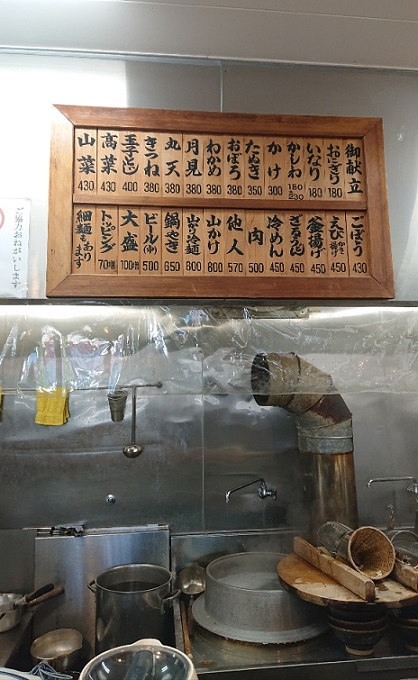 御献立
おにぎり 180
いなり 180
かしわ 180 230
かけ 300
たぬき 350
おぼろ 380
わかめ 380
月見 380
丸天 380
きつね 400
玉子とじ 400
高菜 430
山菜 430
ごぼう 430
えび かき揚げ 450
釜揚げ 450
ざるうどん 450
冷めん 450
肉 500
他人 570
山かけ 600
山かけ冷麺 600
鍋やき 650
ビール(中) 500
大盛 100増
トッピング 70増
細麺もあります
ご協力おねがいします